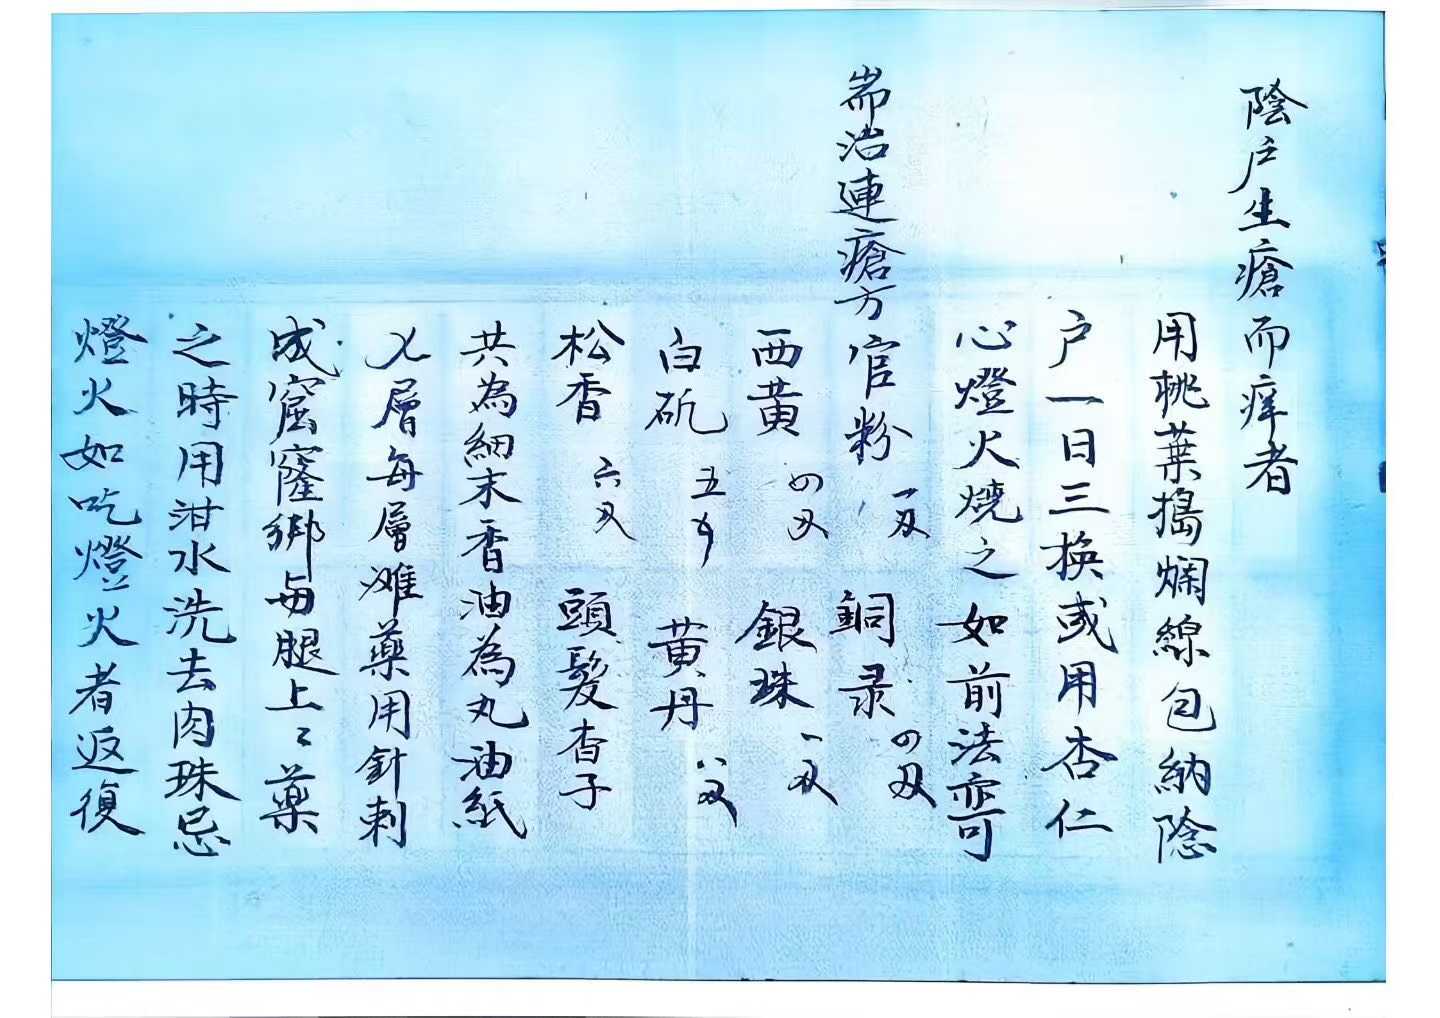 陰戶生瘡而痒者
用桃葉搗爛線包納陰
户一日三換或用杏仁
心燈火燒之如前法亦可
耑治連瘡方
官粉 一刄 銅录 四刄
西黃 四刄 銀珠 一刄
白矾 五 黃丹 八刄
松香 六刄 頭髮杳子
共為細末香油為丸油紙
乂層每層滩藥用針刺
成窟窿綁毎腿上上藥
之時用泔水洗去肉珠忌
燈火如吃燈火者返復